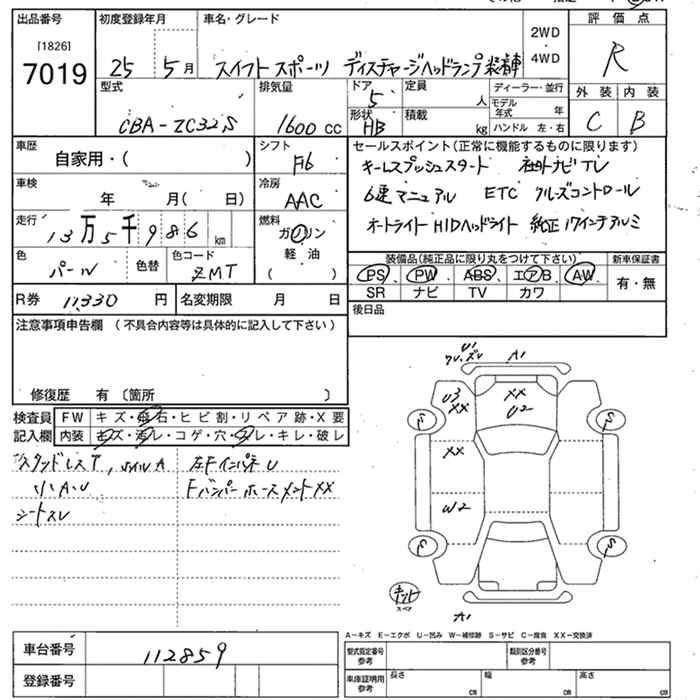 出品番号 初度登録年月 車名・グレード 評価点
[1826]
7019 25 5月 スイフトスポーツ ディスチャージヘッドランプ装着車 2WD
4WD R
型式 排気量 ドア 5 定員 人 ディーラー・並行 外装 内装
CBA-ZC32S 1600 cc 形状 HB 積載 kg モデル年式 年 ハンドル 左・右 C B
車歴 自家用・( ) シフト F6 セールスポイント(正常に機能するものに限ります)
キーレスプッシュスタート 社外ナビTV
車検 年 月( 日) 冷房 AAC 6速マニュアル ETC クルーズコントロール
走行 13万5千986km 燃料 ガソリン オートライト HIDヘッドライト 純正17インチアルミ
軽油
( )
色 パール 色替 色コード ZMT 装備品(純正品に限り丸をつけて下さい) 新車保証書
PS、PW、ABS、エアB、AW 有・無
R券 11,330円 名変期限 月 日 SR ナビ TV カワ
注意事項申告欄(不具合内容等は具体的に記入して下さい) 後日品
修復歴 有〔箇所 〕
検査員 FW キズ・飛石・ヒビ割・リペア跡・X要
記入欄 内装 キズ・汚レ・コゲ・穴・スレ・キレ・破レ
スタッドレスT,ホイルA 左FインパネU
小A・U Fバンパーホースメント××
シートスレ
U1
ワレ・ズレ A1
U3
×× ××
U2
S S
××
W2
S S
スペア
A1
A-キズ E-エクボ U-凹み W-補修跡 S-サビ C-腐食 XX-交換済
車台番号 112859 型式指定番号 参考 類別区分番号 参考
登録番号 車庫証明用 参考 長さ cm 幅 cm 高さ cm